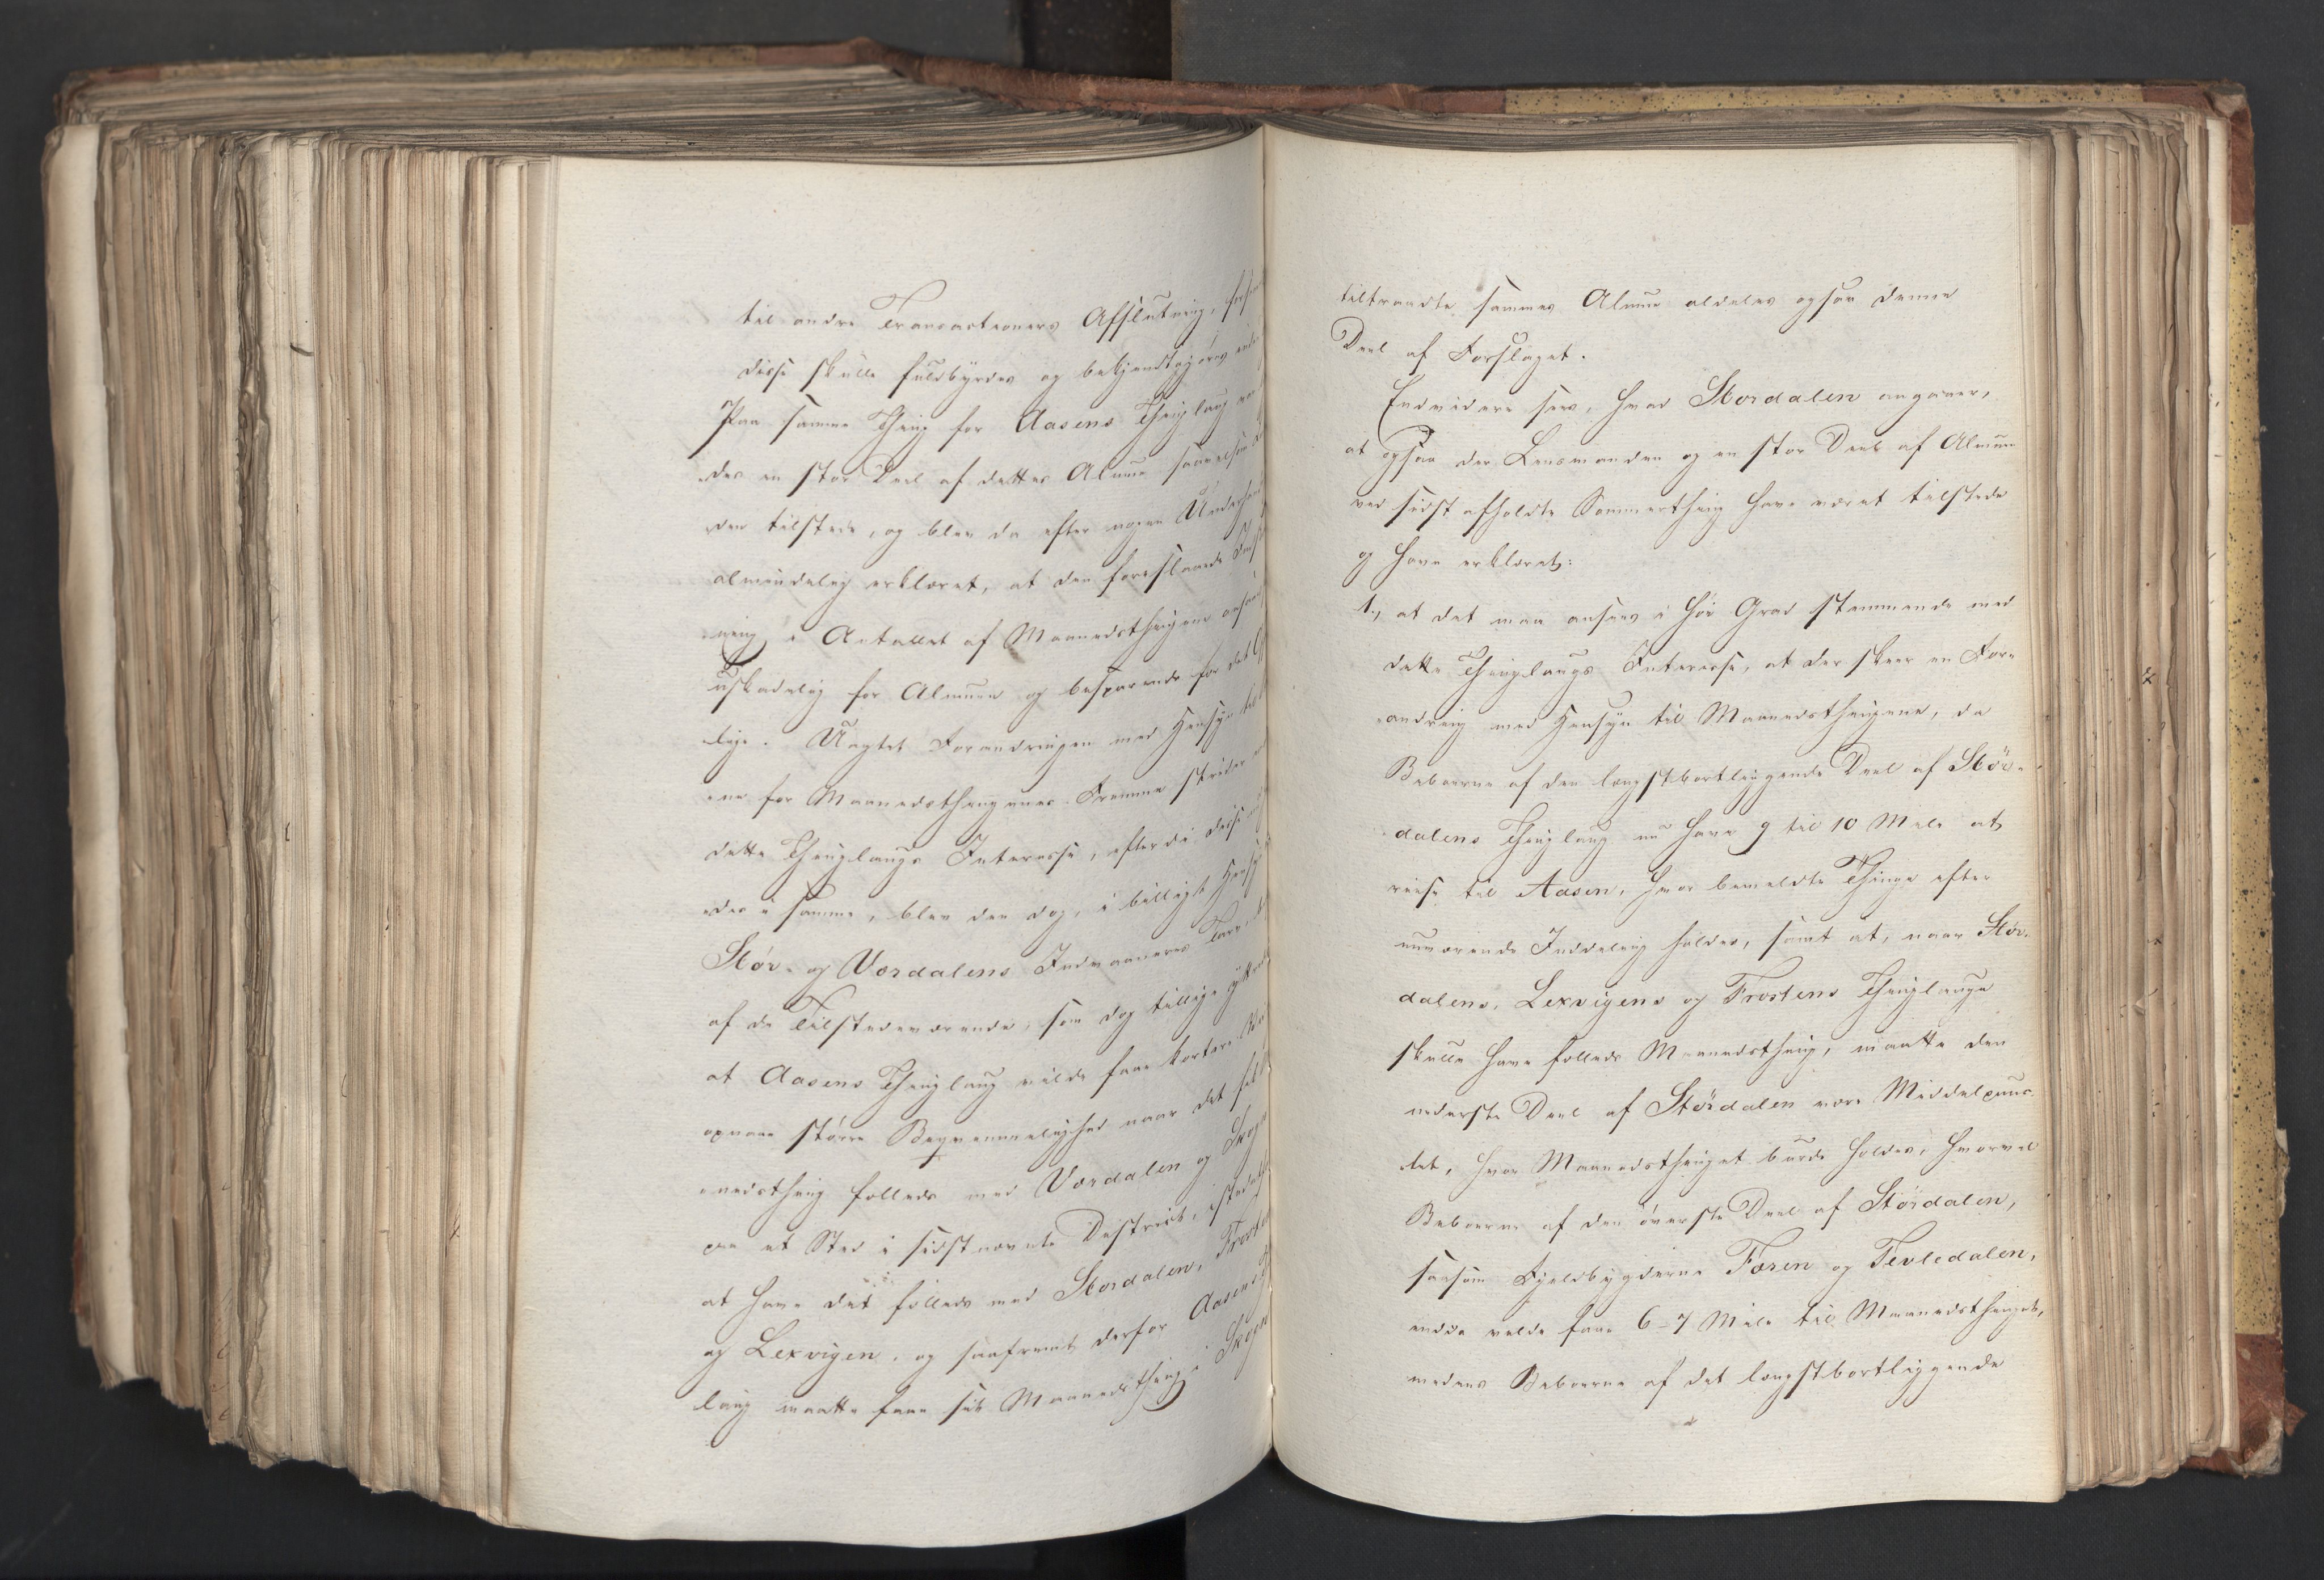 til andre Transactioners Afslutning,
disse skulle fuldbyrdes og bekjendtgjöres
Paa samme Thing for Aasens Thinglaug
des en stor Deel af dettes Almue saavelsom
den tilstede, og blev da efter nogen
almindelig erklæret, at den foreslaaede
ning i Antallet af Maanedsthingene
uskadelig for Almuen og besparende for det
lige. Uagtet Forandringen med Hensyn til
ene for Maanedsthingenes Fremme strider
dette Thinglaugs Interesse, efterdi disse
des i samme, blev den dog, i billigt Hensyn
Stör- og Værdalens Indvaaneres Tarv,
af de Tilstedeværende, som dog tillige yttrede
at Aasens Thinglaug vilde faae kortere
opnaae större Beqvemmelighed naar det
nedsthing fælleds med Værdalen og Skogn
paa et Sted i sidstnævnte District, istedetfor
at have det fælleds med Stordalen, Frosten
og Lexvigen, og saafremt derfor Aasens
laug maatte faae sit Maanedsthing i Skogn
tiltraadte sammes Almue aldeles ogsaa denne
Deel af Forslaget.
Endvidere sees, hvad Stordalen angaaer,
at ogsaa der Lensmanden og en stor Deel af Almuen
ved sidst afholdte Sommerthing have været tilstede
og have erklæret:
1., at det maa ansees i höi Grad stemmende med
dette Thinglaugs Interesse, at der skeer en For-
andring med Hensyn til Maanedsthingene, da
Beboerne af den længstbortliggende Deel af Stör-
dalens Thinglaug nu have 9 til 10 Mile at
reise til Aasen, hvor bemeldte Thinge efter
nuværende Inddeling holdes, samt at, naar Stör-
dalens, Lexvigens og Frostens Thinglauge
skulle have fælleds Maanedsthing, maatte den
nederste Deel af Stördalen være Middelpunc-
tet, hvor Maanedsthinget burde holdes, hvorved
Beboerne af den överste Deel af Stördalen,
saasom Fjeldbygderne Færen og Tevledalen,
endda vilde faae 6-7 Mile til Maanedsthinget,
medens Beboerne af det længstbortliggende